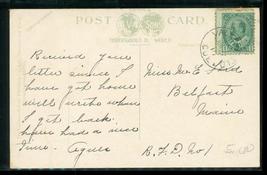 POST CARD
Received your
letter since I
have got home
will write when
I get back
have had a nice
time. Agnes
Miss M. E.
Belfast
Maine
R.F.D. No 1